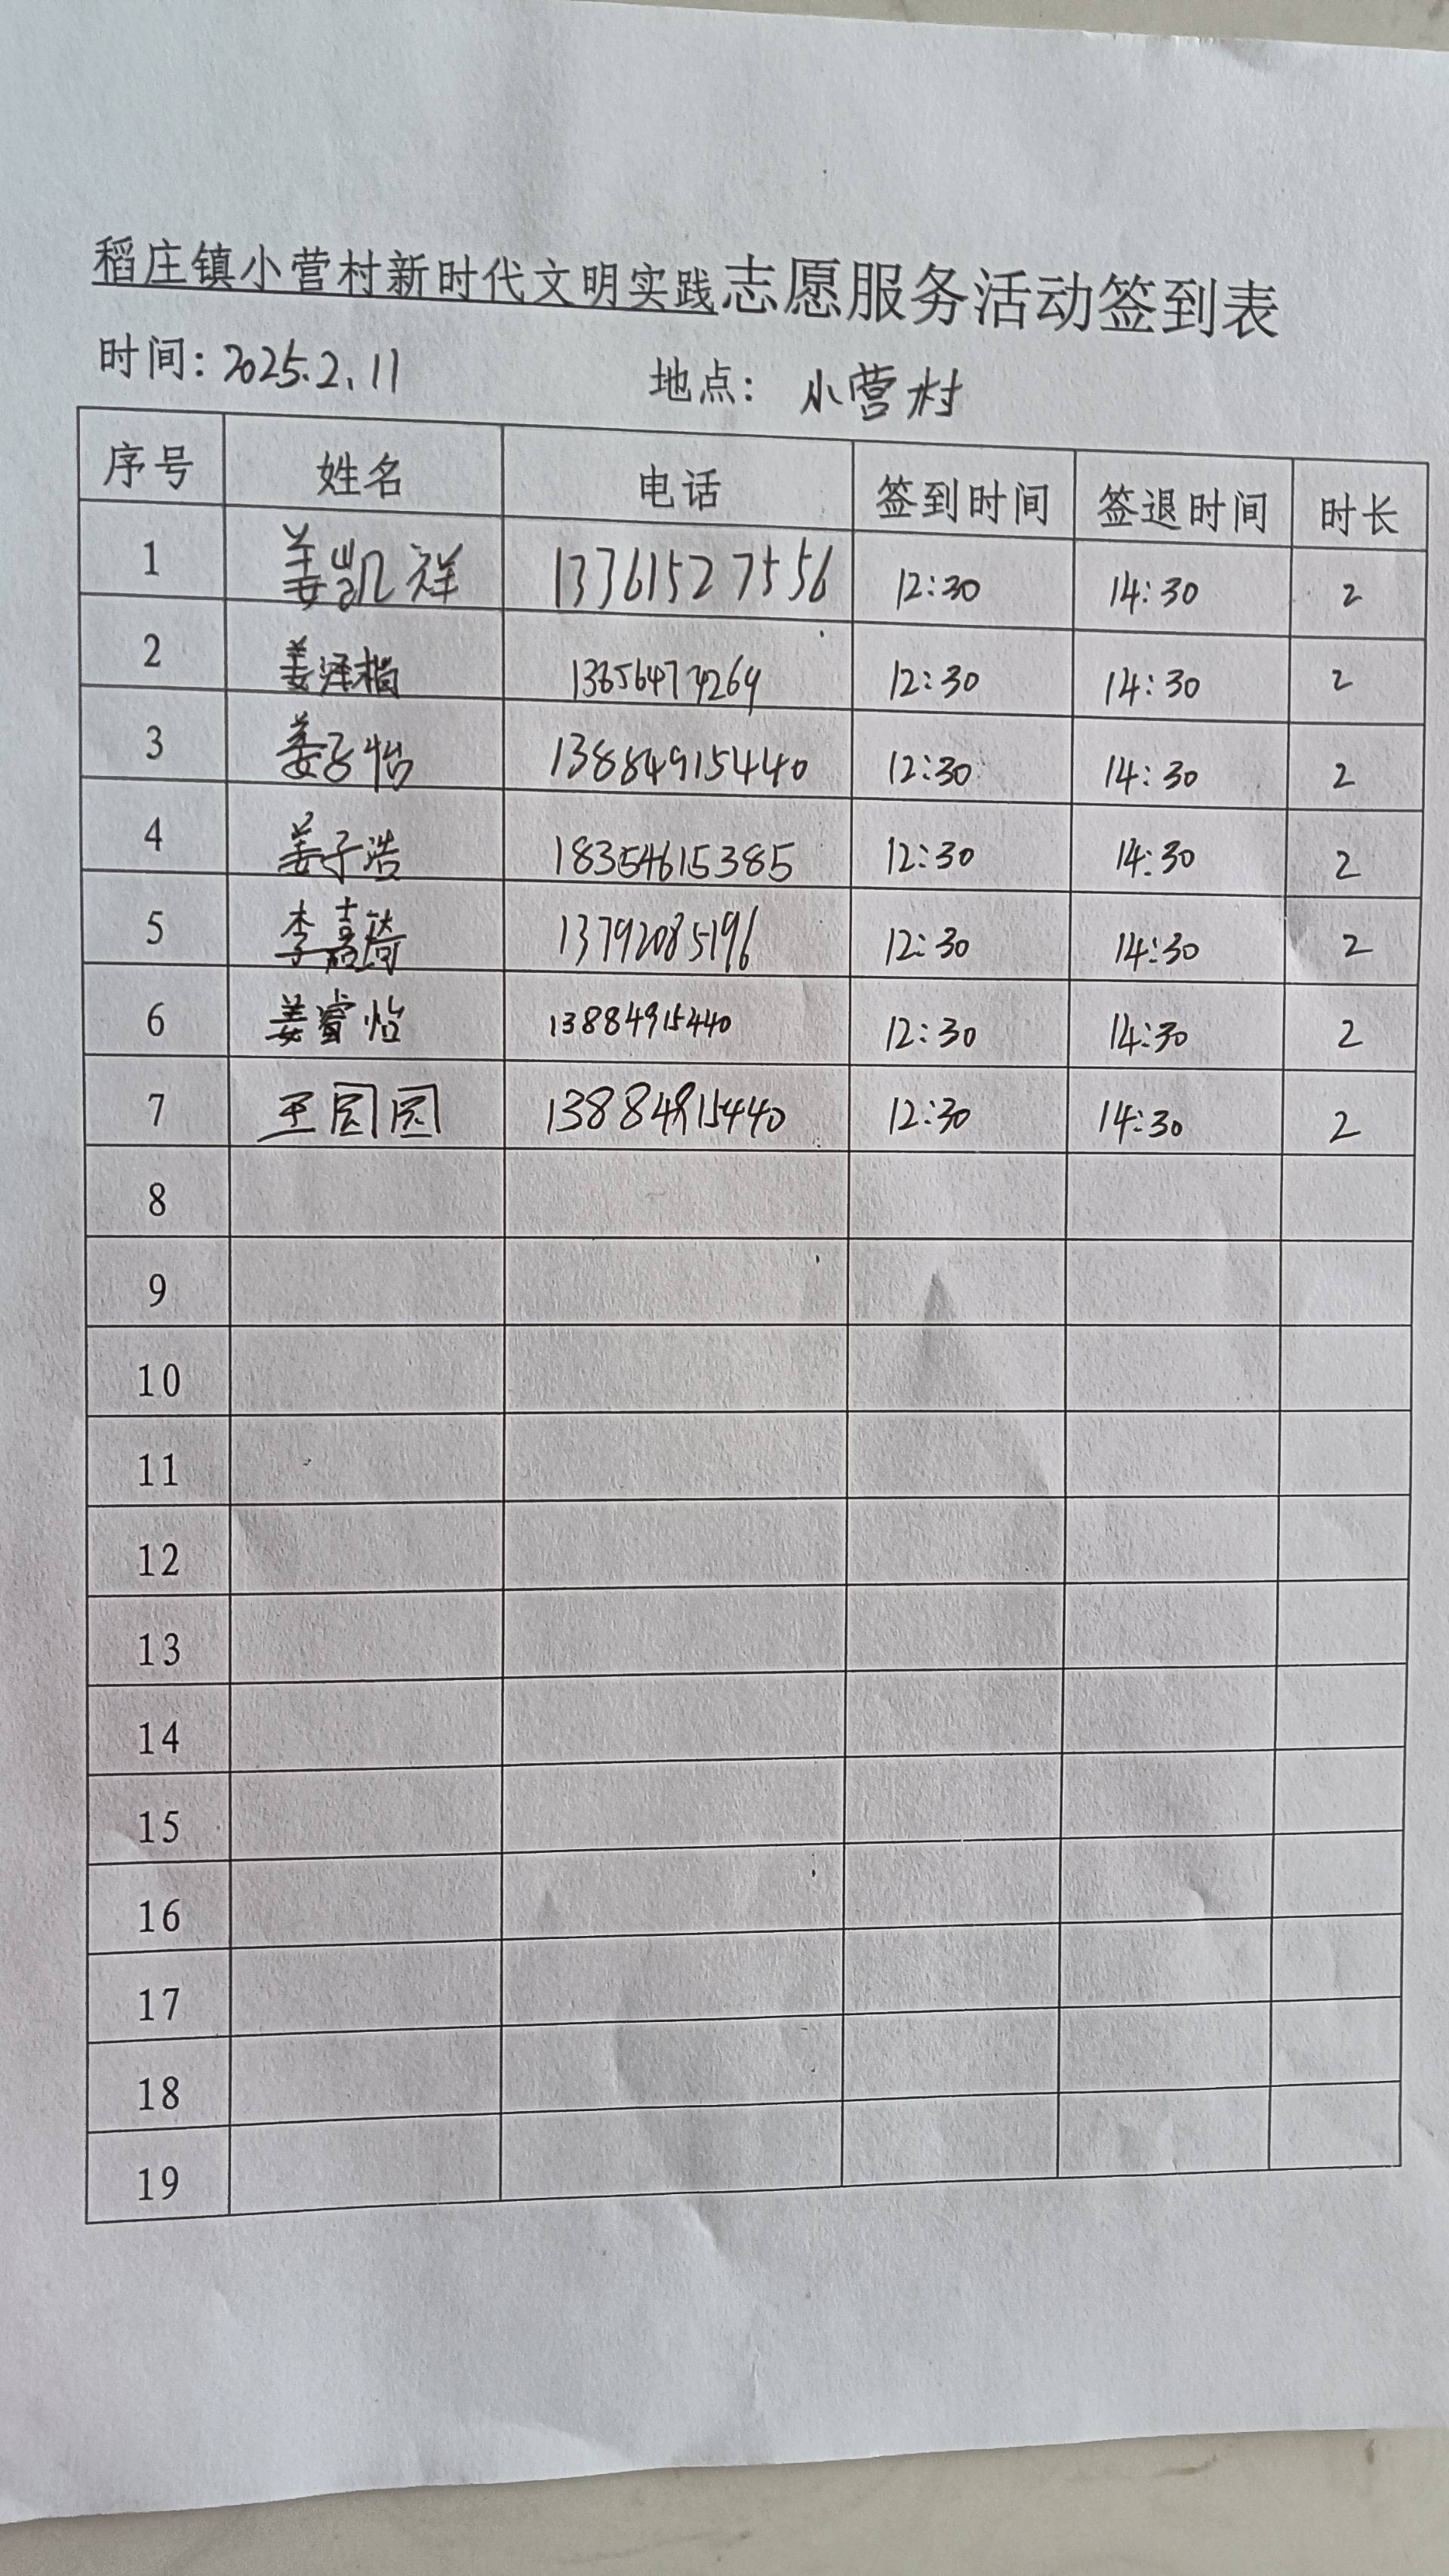 稻庄镇小营村新时代文明实践志愿服务活动签到表
时间：2025.2.11 地点：小营村
序号 姓名 电话 签到时间 签退时间 时长
1 姜凯祥 13361527556 12:30 14:30 2
2 姜泽楷 12:30 14:30 2
3 姜子怡 13884915440 12:30 14:30 2
4 姜子浩 18354615385 12:30 14:30 2
5 李嘉琦 13792085196 12:30 14:30 2
6 姜睿怡 13884915440 12:30 14:30 2
7 王园园 13884915440 12:30 14:30 2
8
9
10
11
12
13
14
15
16
17
18
19